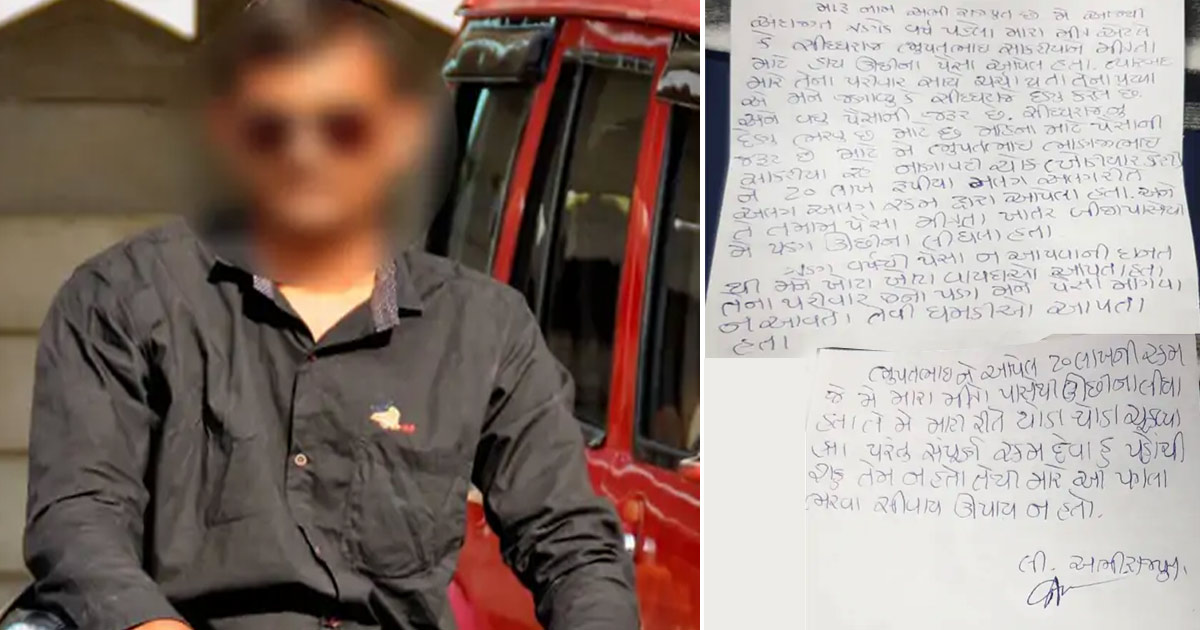 મારૂ નામ અમી રાજપુત છે મે આજથી
વર્ષ પહેલા મારા મીત્ર એટલે
કે સીધ્ધરાજ ભુપતભાઇ સાકરીયાને મીત્રતા
માટે હાથ ઉછીના પૈસા આપેલ હતા. ત્યારબાદ
મારે તેના પરીવાર સાથે ચર્ચા થતા તેના પપ્પા
એ મને જણાવ્યુ કે સીધ્ધરાજ દેણુ કરેલ છે.
અને વધુ પૈસાની જરૂર છે. સીધ્ધરાજનુ
દેણુ ભરવુ છે માટે પૈસાની
જરૂર છે માટે મે ભુપતભાઇ
સાકરીયા રહે
ને ૨૦ લાખ રૂપીયા અલગ અલગ રીતે
અલગ અલગ રકમ દ્વારા આપેલા હતા. અને
તે તમામ પૈસા મીત્રતા ખાતર બીજા પાસેથી
મે પણ ઉછીના લીધેલા હતા
વર્ષથી પૈસા ન આપવાની દાનત
થી મને ખોટા ખોટા વાયદાઓ આપતા હતા
તેના પરીવાર પણ મને પૈસા માંગવા
ન આવતો તેવી ધમકીઓ આપતા
હતા।
ભુપતભાઇ ને આપેલ ૨૦ લાખની રકમ
જે મે મારા મીત્રો પાસેથી ઉછીના લીધા
હતા તે મે મારી રીતે થોડા થોડા ચુકવ્યા
પરંતુ સંપુર્ણ રકમ દેવા હુ પહોંચી
શકુ તેમ ન હતો તેથી મારે આ પગલા
ભરવા સીવાય ઉપાય ન હતો.
લી. અમી રાજપુત.